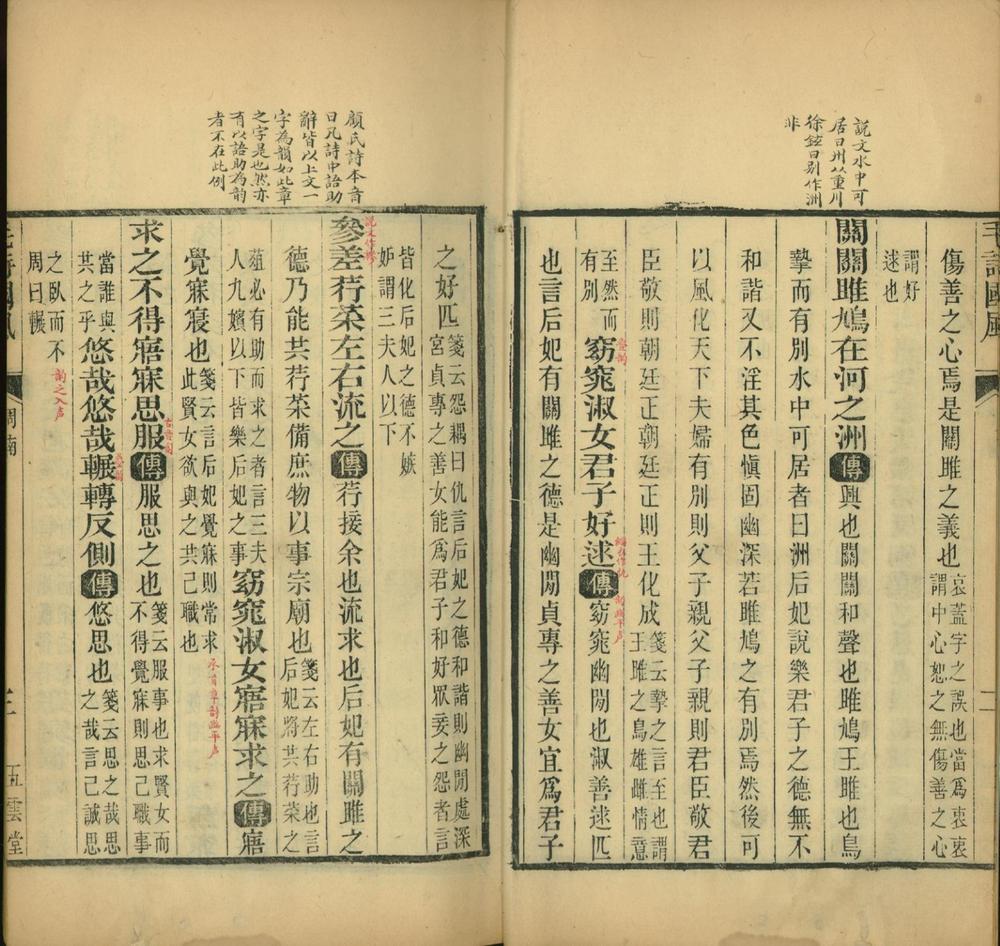 說文水中可
居曰州从重川
徐鉉曰别作洲
非
毛詩國風
傷善之心焉是關雎之義也
哀蓋字之誤也當爲衷衷
謂中心恕之無傷善之心
謂好
逑也
關關雎鳩在河之洲傳興也關關和聲也雎鳩王雎也鳥
摯而有別水中可居者曰洲后妃說樂君子之德無不
和諧又不淫其色愼固幽深若雎鳩之有別焉然後可
以風化天下夫婦有別則父子親父子親則君臣敬君
臣敬則朝廷正朝廷正則王化成
箋云摯之言至也謂
王雎之鳥雄雌情意
至然而
有別
窈窕淑女君子好逑傳窈窕幽閒也淑善逑匹
也言后妃有關雎之德是幽閒貞專之善女宜爲君子
二
顧氏詩本音
曰凡詩中語助
辭皆以上文一
字為韻如此章
之字是也然亦
有以語助為韵
者不在此例
之好匹
箋云怨耦曰仇言后妃之德和諧則幽閒處深
宮貞專之善女能爲君子和好眾妾之怨者言
皆化后妃之德不嫉
妒謂三夫人以下
參差荇菜左右流之傳荇接余也流求也后妃有關雎之
德乃能共荇菜備庶物以事宗廟也
箋云左右助也言
后妃將共荇菜之
葅必有助而求之者言三夫
人九嬪以下皆樂后妃之事
窈窕淑女寤寐求之傳寤
覺寐寢也
箋云言后妃覺寐則常求
此賢女欲與之共己職也
承首章詩幽平声
求之不得寤寐思服傳服思之也
箋云服事也求賢女而
不得覺寐則思己職事
當誰與
共之乎
悠哉悠哉輾轉反側傳悠思也
箋云思之哉思
之哉言己誠思
之臥而不
周曰輾
韵之入声
周南
五雲堂